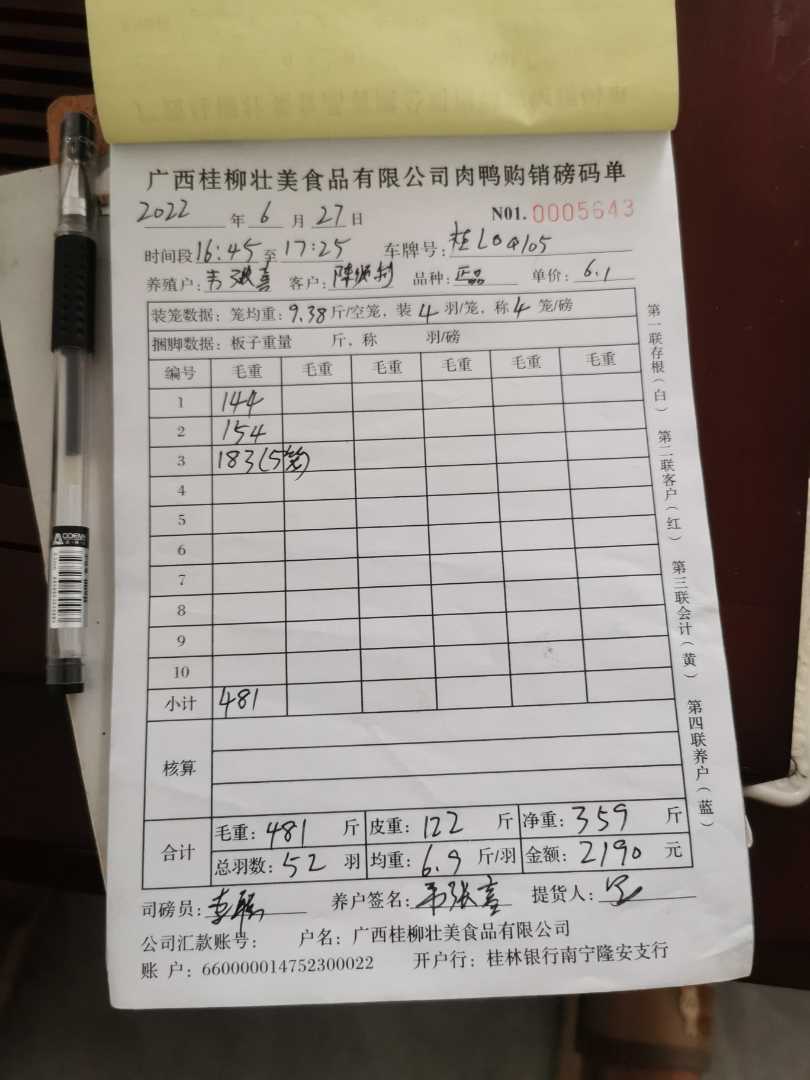 广西桂柳壮美食品有限公司肉鸭购销磅码单
2022 年 6 月 27 日 N01. 0005643
时间段 16:45 至 17:25 车牌号: 桂L0Q105
养殖户: 韦张喜 客户: 品种: 正品 单价: 6.1
装笼数据: 笼均重: 9.38 斤/空笼, 装 4 羽/笼, 称 4 笼/磅
捆脚数据: 板子重量 斤, 称 羽/磅
编号 毛重 毛重 毛重 毛重 毛重 毛重
1 144
2 154
3 183(5笼)
4
5
6
7
8
9
10
小计 481
核算
合计 毛重: 481 斤 皮重: 122 斤 净重: 359 斤
总羽数: 52 羽 均重: 6.9 斤/羽 金额: 2190 元
司磅员: 养户签名: 韦张喜 提货人:
公司汇款账号: 户名: 广西桂柳壮美食品有限公司
账 户: 660000014752300022 开户行: 桂林银行南宁隆安支行
第一联存根(白) 第二联客户(红) 第三联会计(黄) 第四联养户(蓝)